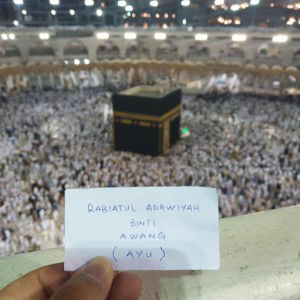 RABIATUL ADAWIYAH
BINTI
AWANG
(AYU)